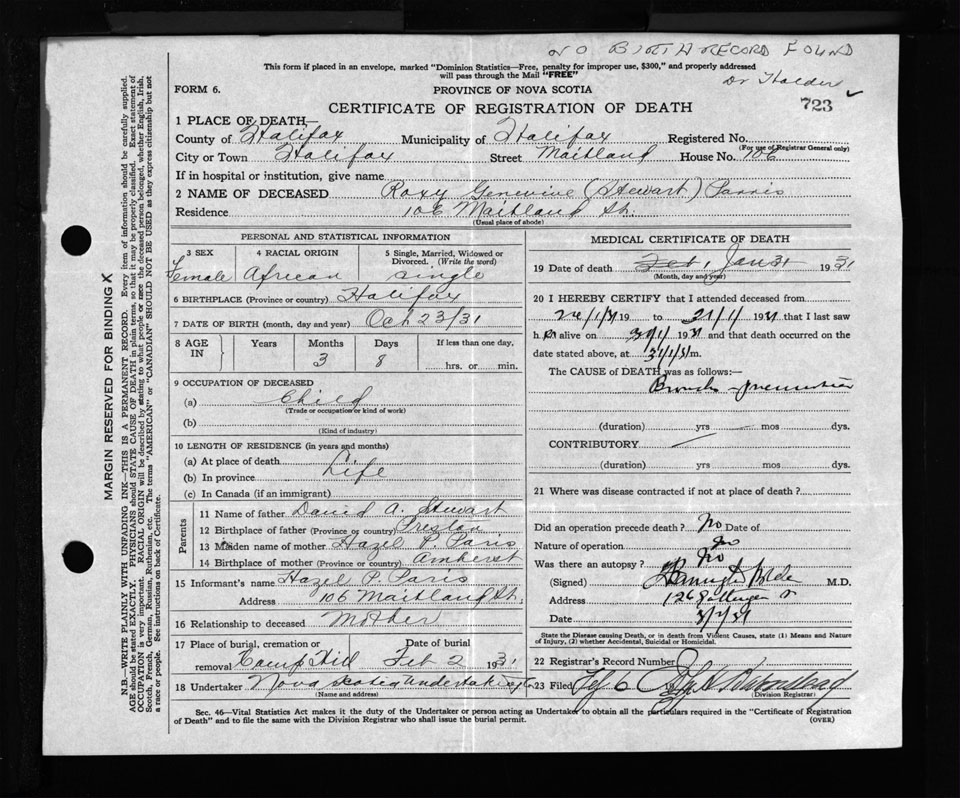 NO BIRTH RECORD FOUND
This form if placed in an envelope, marked "Dominion Statistics—Free, penalty for improper use, $300," and properly addressed
will pass through the Mail "FREE"
Dr Holder
FORM 6.
PROVINCE OF NOVA SCOTIA
CERTIFICATE OF REGISTRATION OF DEATH
723
1 PLACE OF DEATH—
County of Halifax Municipality of Halifax Registered No.
(For use of Registrar General only)
City or Town Halifax Street Maitland House No. 106
If in hospital or institution, give name
2 NAME OF DECEASED Roxy Genevive (Stewart) Parris
Residence 106 Maitland St.
(Usual place of abode)
PERSONAL AND STATISTICAL INFORMATION
3 SEX 4 RACIAL ORIGIN 5 Single, Married, Widowed or
Divorced. (Write the word)
Female African single
6 BIRTHPLACE (Province or country) Halifax
7 DATE OF BIRTH (month, day and year) Oct 23/31
8 AGE IN Years Months Days If less than one day,
3 8 hrs. or min.
9 OCCUPATION OF DECEASED
(a) Child
(Trade or occupation or kind of work)
(b)
(Kind of industry)
10 LENGTH OF RESIDENCE (in years and months)
(a) At place of death
(b) In province Life
(c) In Canada (if an immigrant)
Parents
11 Name of father David A. Stewart
12 Birthplace of father (Province or country) Preston
13 Maiden name of mother Hazel P. Paris
14 Birthplace of mother (Province or country) Amherst
15 Informant's name Hazel P. Paris
Address 106 Maitland St.
16 Relationship to deceased Mother
17 Place of burial, cremation or Date of burial
removal Camp Hill Feb 2 1931
18 Undertaker Nova Scotia Undertaking Co
MEDICAL CERTIFICATE OF DEATH
19 Date of death Feb 1, Jan 31 1931
(Month, day and year)
20 I HEREBY CERTIFY that I attended deceased from
19 to 19 that I last saw
h er alive on 19 and that death occurred on
date stated above, at m.
The CAUSE of DEATH was as follows:—
Broncho-pneumonia
(duration) yrs mos dys.
CONTRIBUTORY
(duration) yrs mos dys.
21 Where was disease contracted if not at place of death?
Did an operation precede death? No Date of
Nature of operation no
Was there an autopsy? No
(Signed) M.D.
Address 126 Gottingen St
Date
State the Disease causing Death, or in death from Violent Causes, state (1) Means and Nature
of Injury, (2) whether Accidental, Suicidal or Homicidal.
22 Registrar's Record Number
23 Filed Feb 6
(Division Registrar)
Sec. 46—Vital Statistics Act makes it the duty of the Undertaker or person acting as Undertaker to obtain all the particulars required in the "Certificate of Registration
of Death" and to file the same with the Division Registrar who shall issue the burial permit.
(OVER)
MARGIN RESERVED FOR BINDING X
N.B—WRITE PLAINLY WITH UNFADING INK—THIS IS A PERMANENT RECORD. Every item of information should be carefully supplied.
AGE should be stated EXACTLY. PHYSICIANS should STATE CAUSE OF DEATH in plain terms, so that it may be properly classified. Exact statement of
OCCUPATION is very important. RACIAL ORIGIN will be described by stating to what people or race the deceased person belonged, whether English, Irish,
Scotch, French, German, Russian, Ruthenian, etc. The terms "AMERICAN" or "CANADIAN" SHOULD NOT BE USED as they express citizenship but not
a race or people. See instructions on back of Certificate.